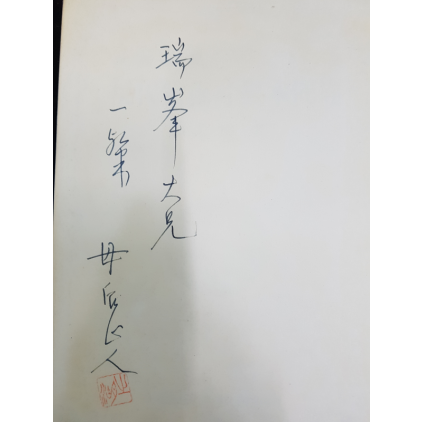 瑞峯大兄
一粲
毋后山人